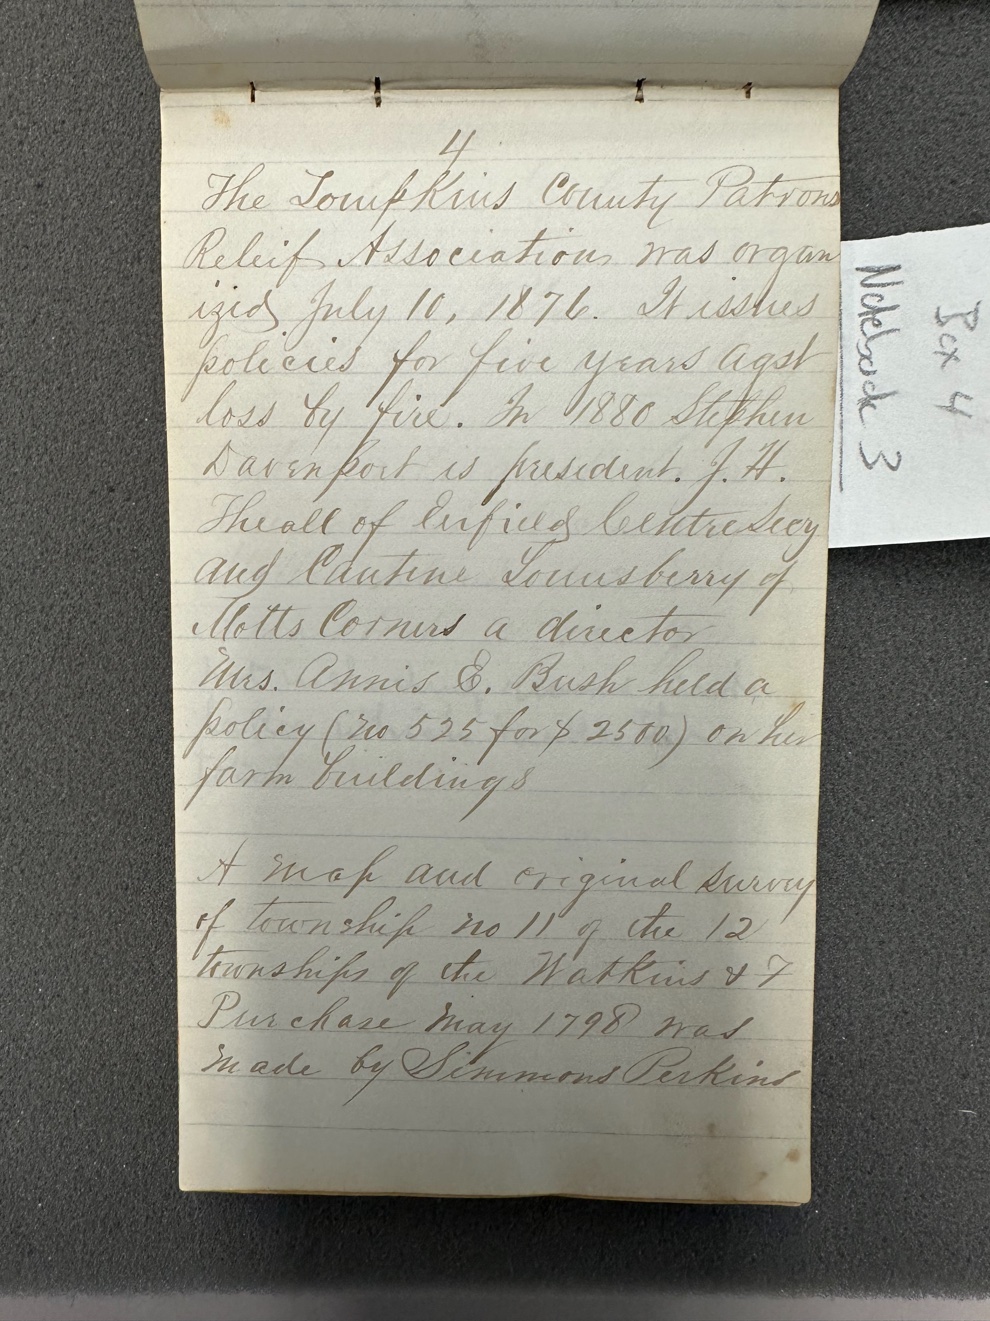 4
The Tompkins County Patrons
Releif Association was organ
ized July 10, 1876. It issues
policies for five years agst
loss by fire. In 1880 Stephen
Davenport is president. J. H.
Theall of Enfield Centre Secy
and Cantine Lounsberry of
Motts Corners a director
Mrs. Annis E. Bush held a
policy (no 525 for $ 2500) on her
farm buildings
A map and original survey
of township no 11 of the 12
townships of the Watkins & F
Purchase May 1798 was
made by Simmons Perkins
Box 4
Notebook 3